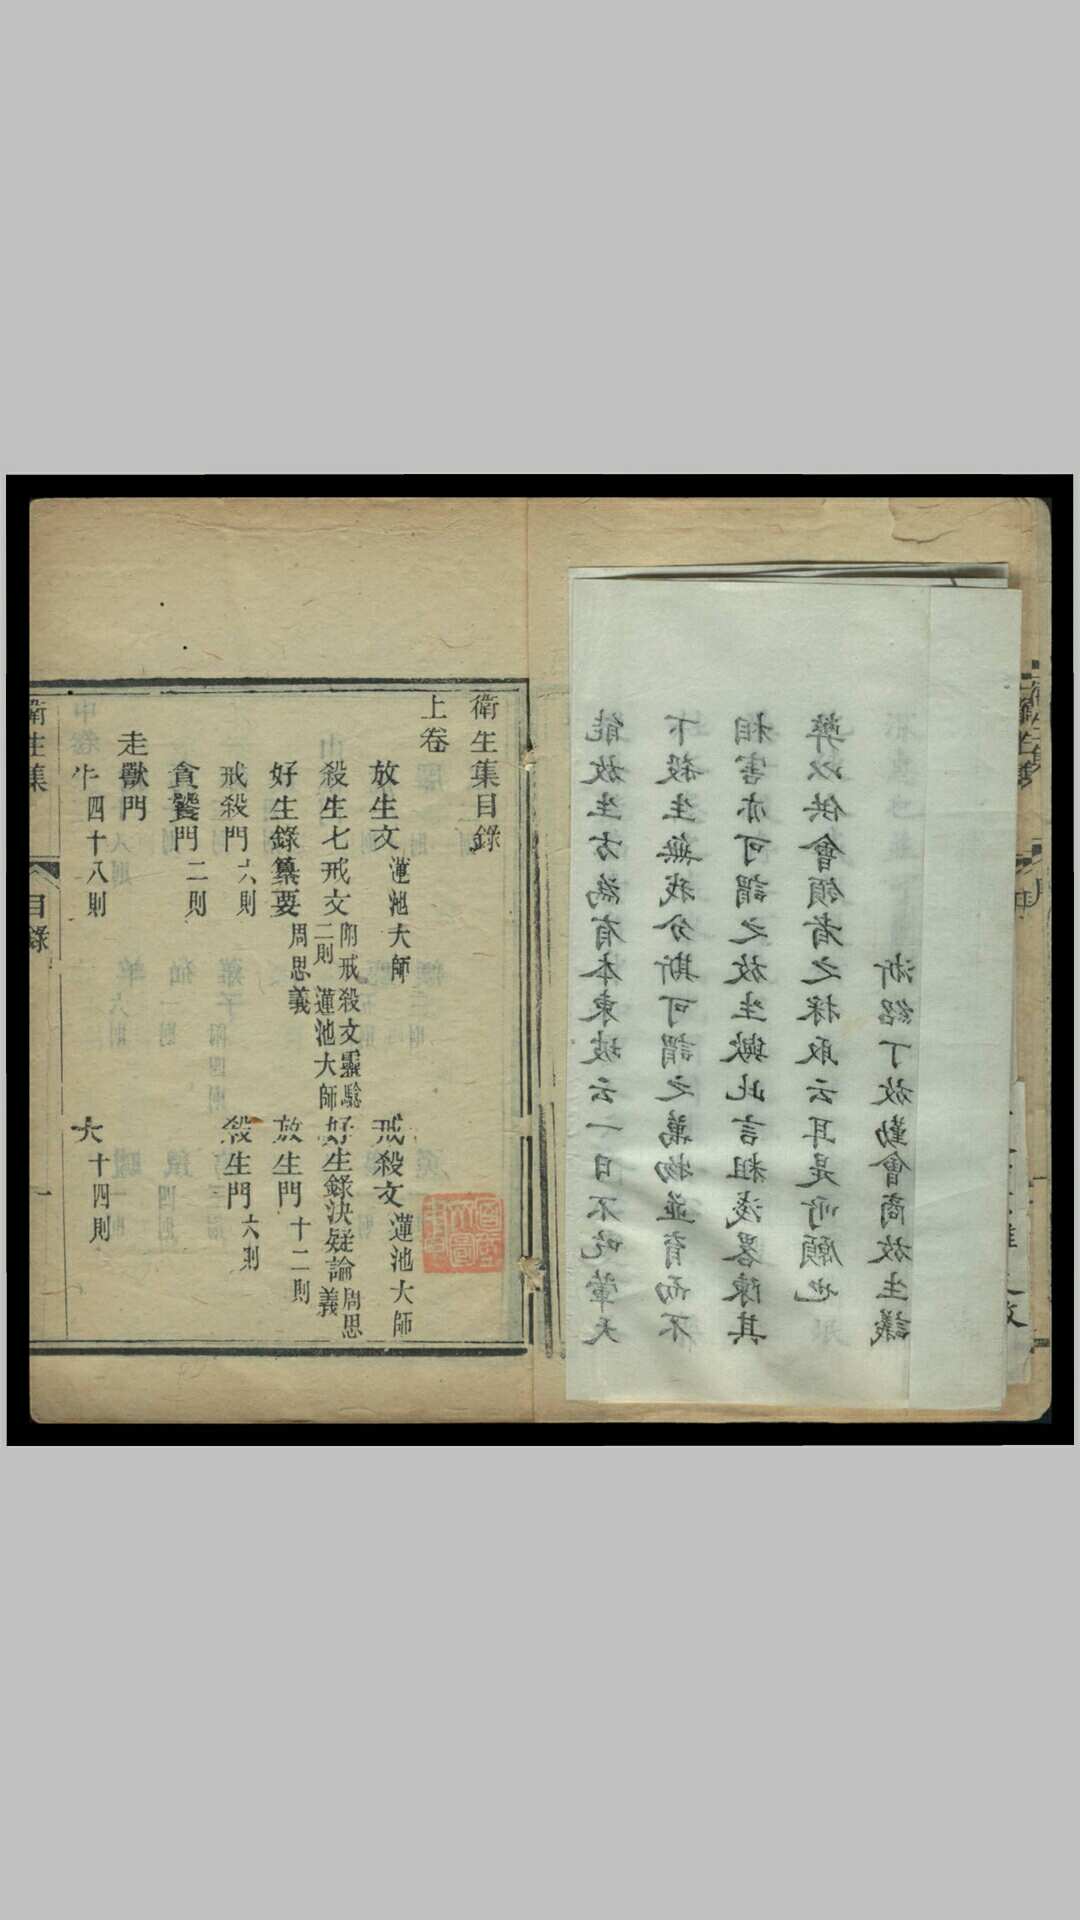 能放生方為有本東坡云一日不吃葷天
下殺生無我分斯可謂之萬物並育而不
相害亦可謂之放生歟此言粗淺畧陳其
弊以供會領者之採取云耳是所願也
浙紹丁放勤會商放生議
衛生集目錄
上卷
放生文 蓮池大師 戒殺文 蓮池大師
殺生七戒文 附戒殺文靈驗二則 蓮池大師 好生錄決疑論 周思義
好生錄纂要 周思義 放生門 十二則
戒殺門 六則 殺生門 六則
貪饕門 二則
走獸門
牛 四十八則 犬 十四則
衛生集 目錄 一